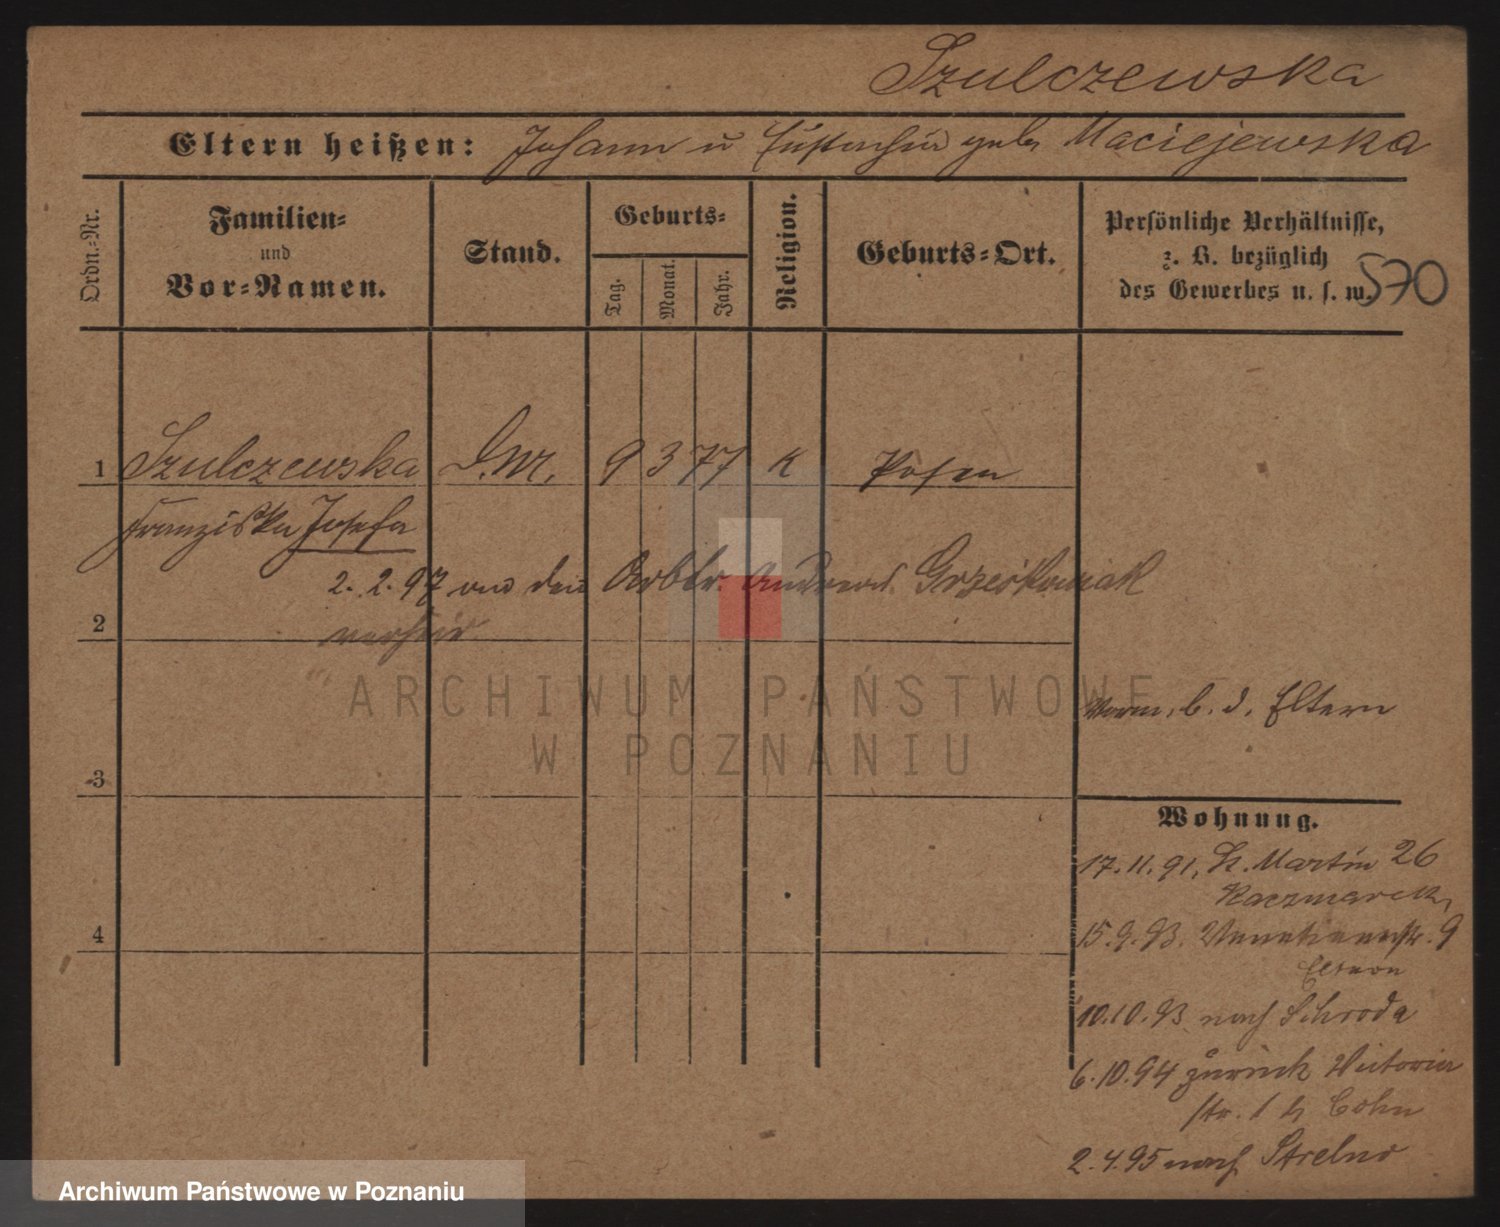 Szulczewska
Eltern heißen: Johann u Eustachia geb. Maciejewska
Ordn.-Nr.
Familien-
und
Vor-Namen.
Stand.
Geburts-
Tag.
Monat.
Jahr.
Religion.
Geburts-Ort.
Persönliche Verhältnisse,
z. B. bezüglich
des Gewerbes u. s. w.
570
1 Szulczewska D.M. 9 3 77 K Posen
Franziska Josefa
2. 2. 97 an den Arbtr. Andreas Grześkowiak
verheir
2
ARCHIWUM PAŃSTWOWE
W POZNANIU
b. d. Eltern
3
Wohnung.
17.11.91. St. Martin 26
Kaczmarek
15.9.93. 9
Eltern
4
10.10.93 nach Schroda
6.10.94 zurück Victoria
str. 1 b Cohn
2.4.95 nach Strelno
Archiwum Państwowe w Poznaniu